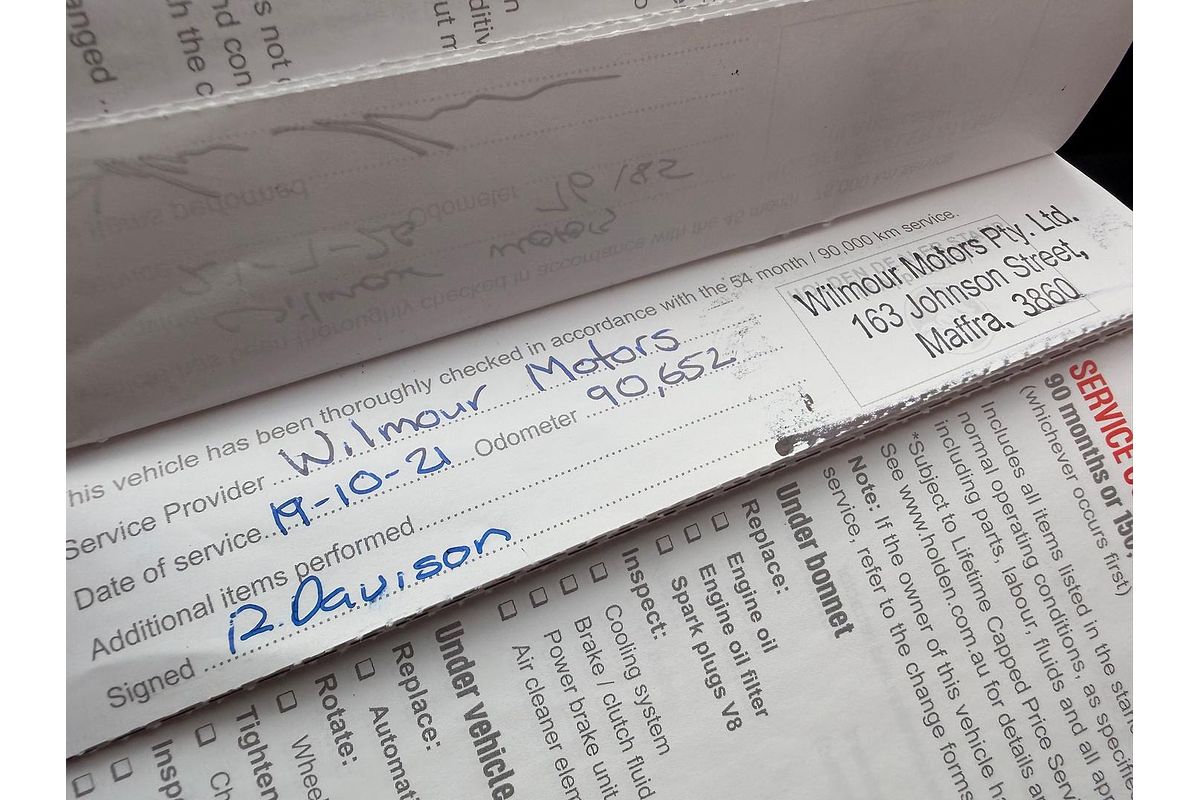 anged ...
s not
nd con
h the c
n
ditiv
ut m
his vehicle has been thoroughly checked in accordance with the 54 month / 90,000 km service.
Service Provider Wilmour Motors
Date of service 19-10-21 Odometer 90,652
Additional items performed
Signed R. Davison
Wilmour Motors Pty. Ltd.
163 Johnson Street,
Maffra. 3860
SERVICE
90 months or 150,
(whichever occurs first)
Includes all items listed in the
normal operating conditions, as specifie
including parts, labour, fluids and all app
*Subject to Lifetime Capped Price Serv
See www.holden.com.au for details a
Note: If the owner of this vehicle h
service, refer to the change forms
Under bonnet
Replace:
Engine oil
Engine oil filter
Spark plugs V8
Inspect:
Cooling system
Brake / clutch fluid
Power brake unit
Air cleaner elem
Under vehicle
Replace:
Automati
Rotate:
Whee
Tighten
Ch
Insp